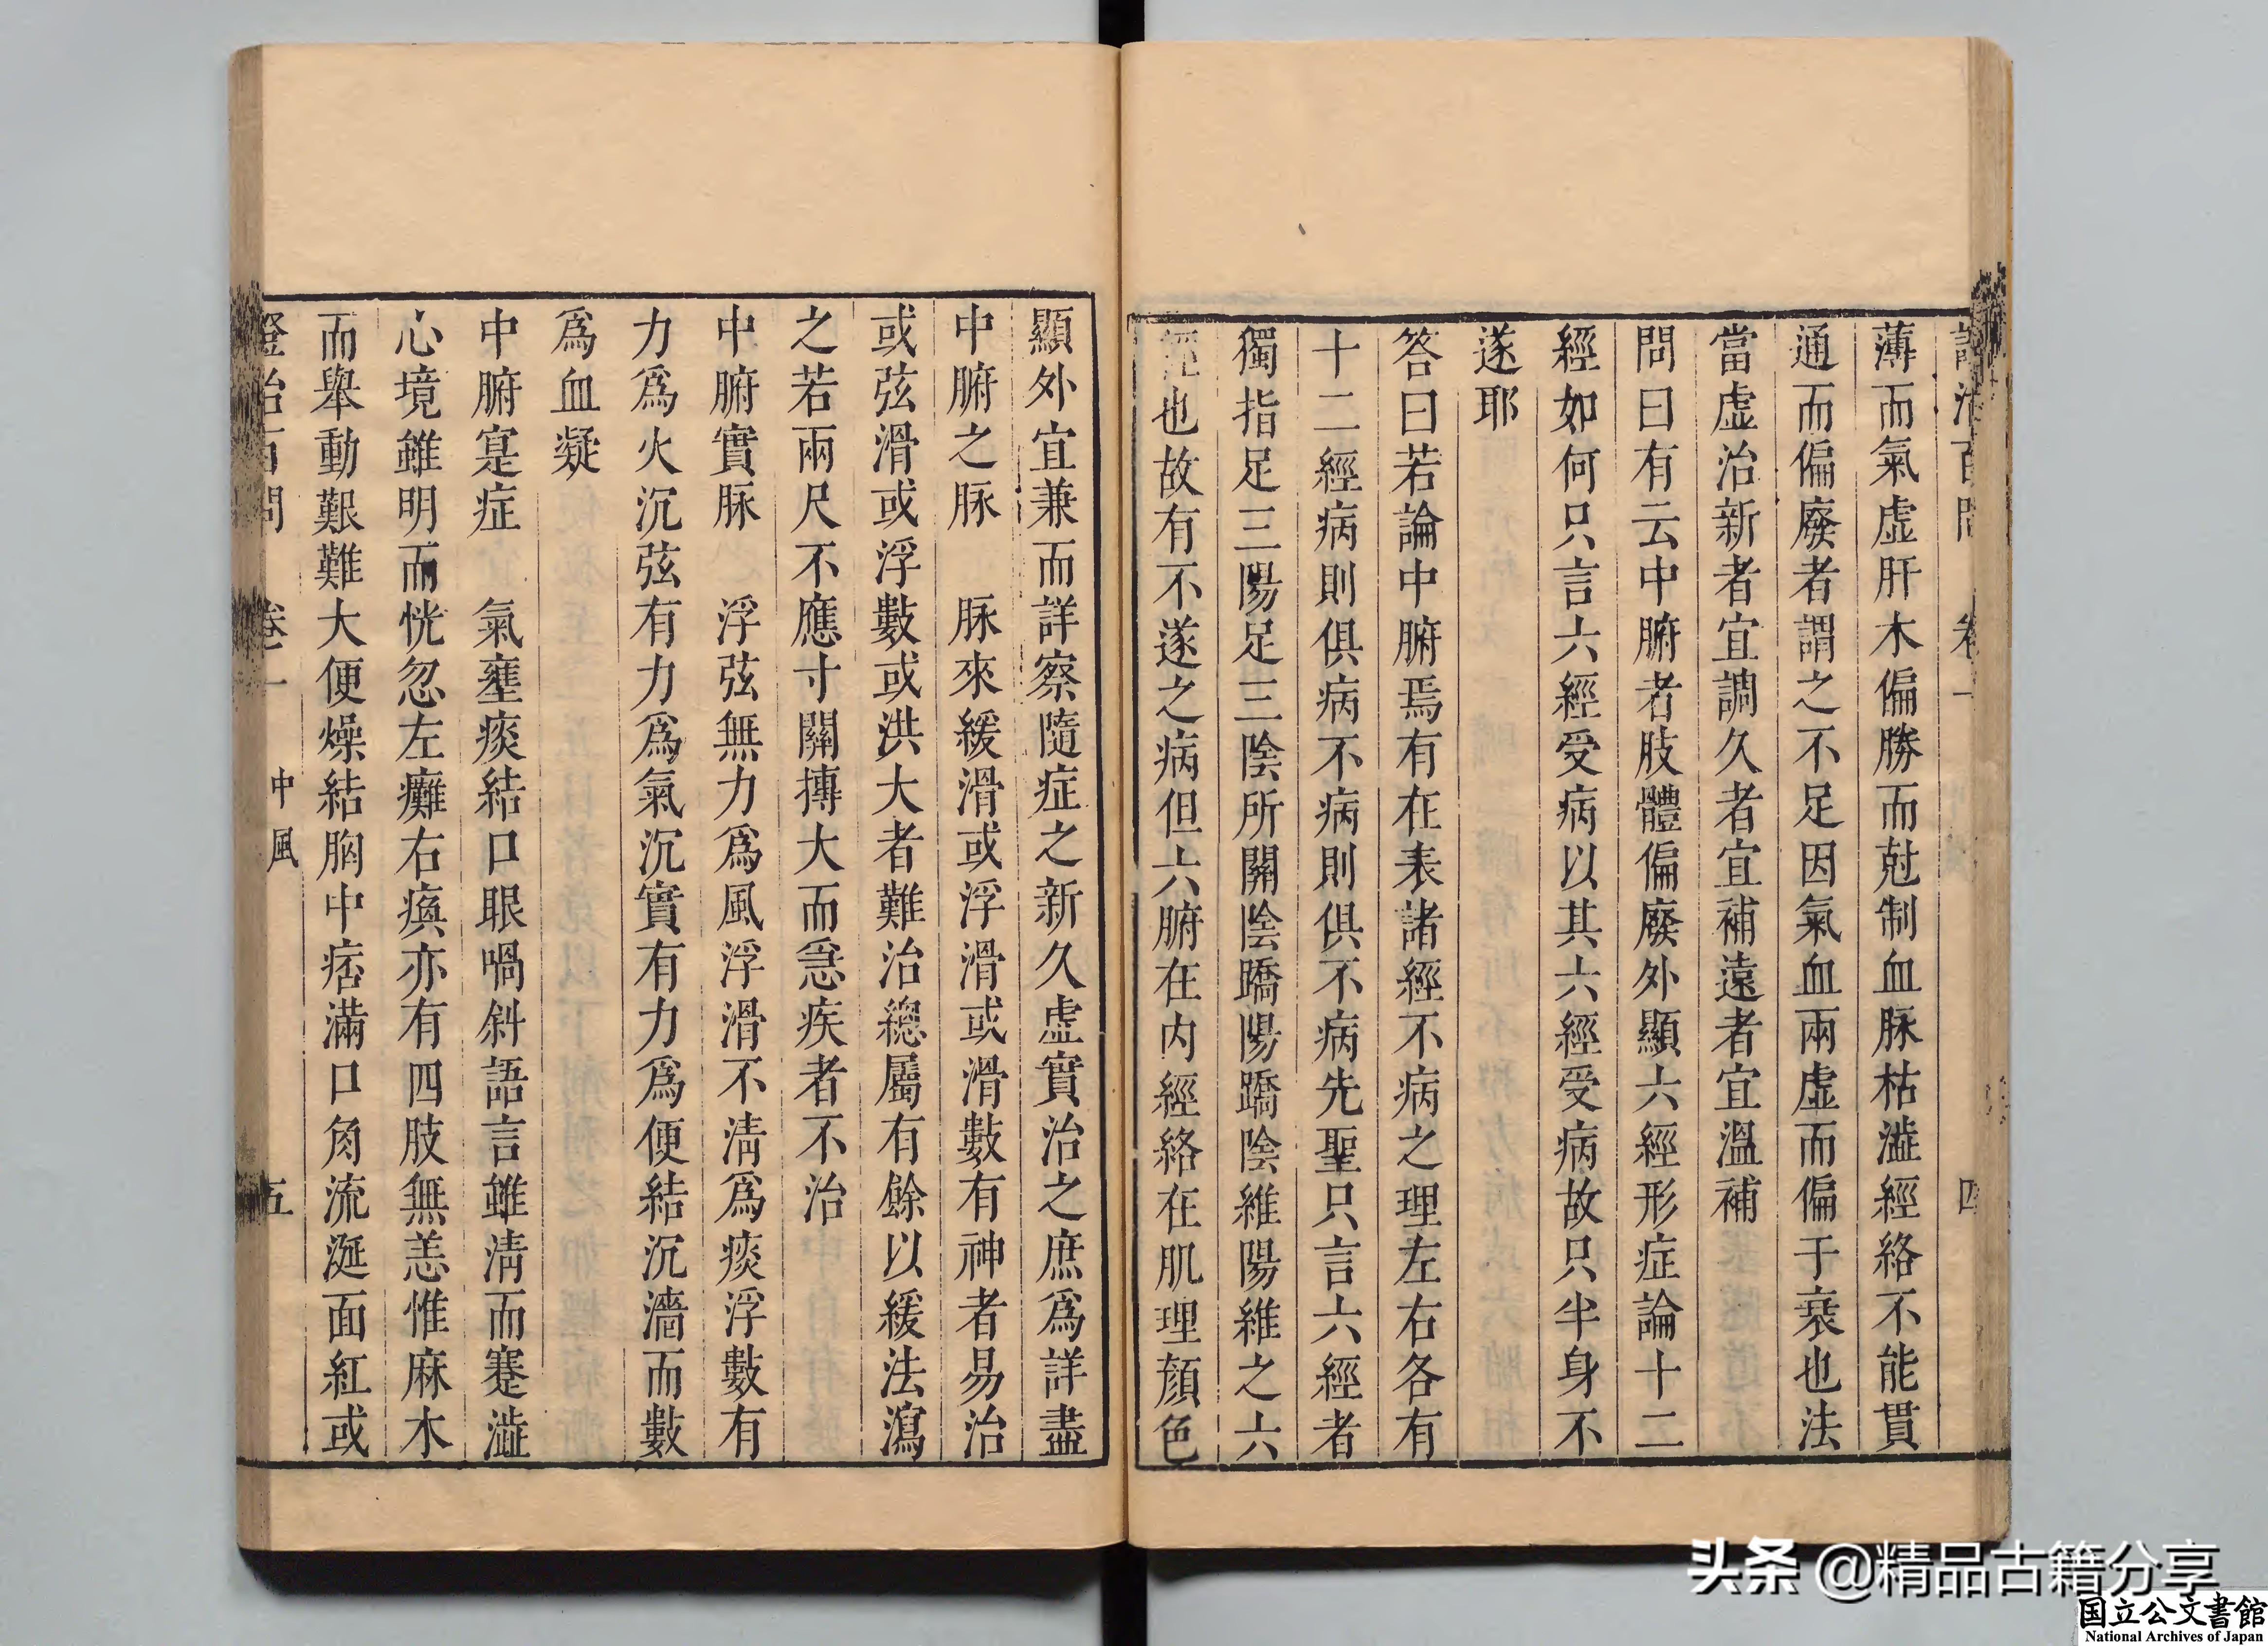 證治百問 卷一 四
薄而氣虛肝木偏勝而尅制血脉枯澁經絡不能貫
通而偏廢者謂之不足因氣血兩虛而偏于衰也法
當虛治新者宜調久者宜補遠者宜溫補
問曰有云中腑者肢體偏廢外顯六經形症論十二
經如何只言六經受病以其六經受病故只半身不
遂耶
答曰若論中腑焉有在表諸經不病之理左右各有
十二經病則俱病不病則俱不病先聖只言六經者
獨指足三陽足三陰所關陰蹻陽蹻陰維陽維之六
經也故有不遂之病但六腑在内經絡在肌理顏色
顯外宜兼而詳察隨症之新久虛實治之庶爲詳盡
中腑之脉 脉來緩滑或浮滑或滑數有神者易治
或弦滑或浮數或洪大者難治總屬有餘以緩法瀉
之若兩尺不應寸關摶大而急疾者不治
中腑實脉 浮弦無力爲風浮滑不清爲痰浮數有
力爲火沉弦有力爲氣沉實有力爲便結沉濇而數
爲血凝
中腑寔症 氣壅痰結口眼喎斜語言雖清而蹇澁
心境雖明而恍忽左癱右瘓亦有四肢無恙惟麻木
而舉動艱難大便燥結胸中痞滿口角流涎面紅或
證治百問 卷一 中風 五
头条 @精品古籍分享
国立公文書館
National Archives of Japan